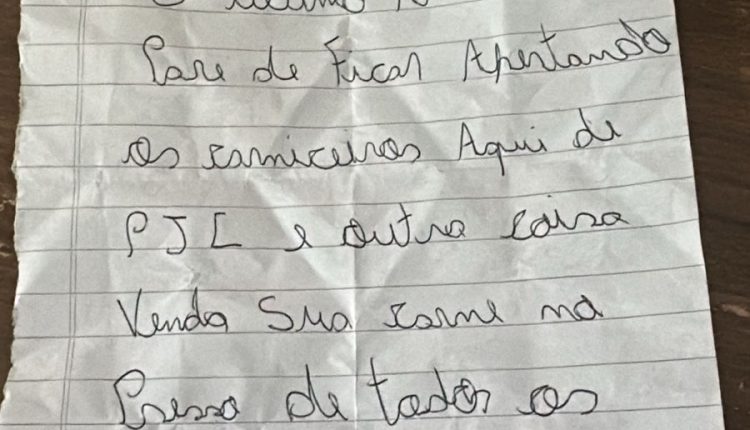 Pare de Ficar Apertando
os carniceiros Aqui de
PJL e outra coisa
Venda Sua carne no
Preso de todos os